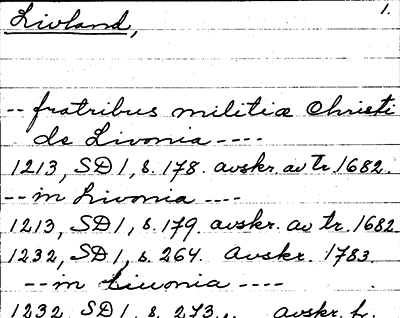 1.
Livland,
-- fratribus militiæ Christi
de Livonia ----
1213, SD 1, s. 178. avskr. av tr. 1682.
-- in Livonia ----
1213, SD 1, s. 179. avskr. av tr. 1682
1232, SD 1, s. 264. avskr. 1783.
-- in Liuonia ----
1232, SD 1, s. 273., avskr. fr.